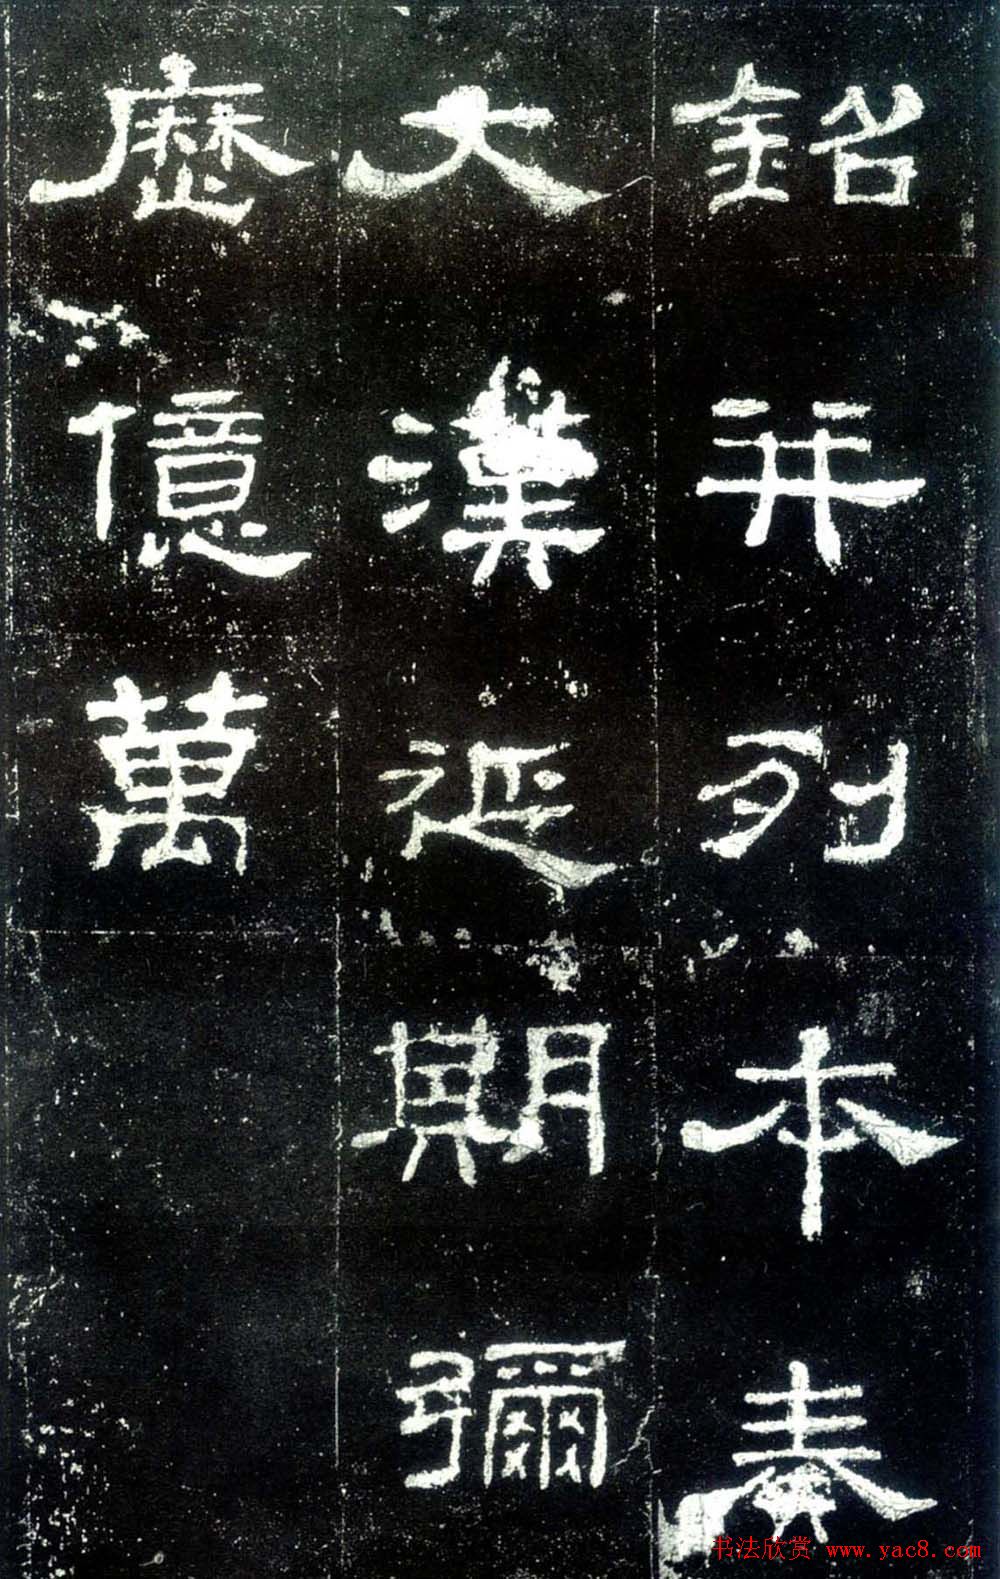 銘并列本奏
大漢延期彌
歷億萬
书法欣赏 www.yac8.com